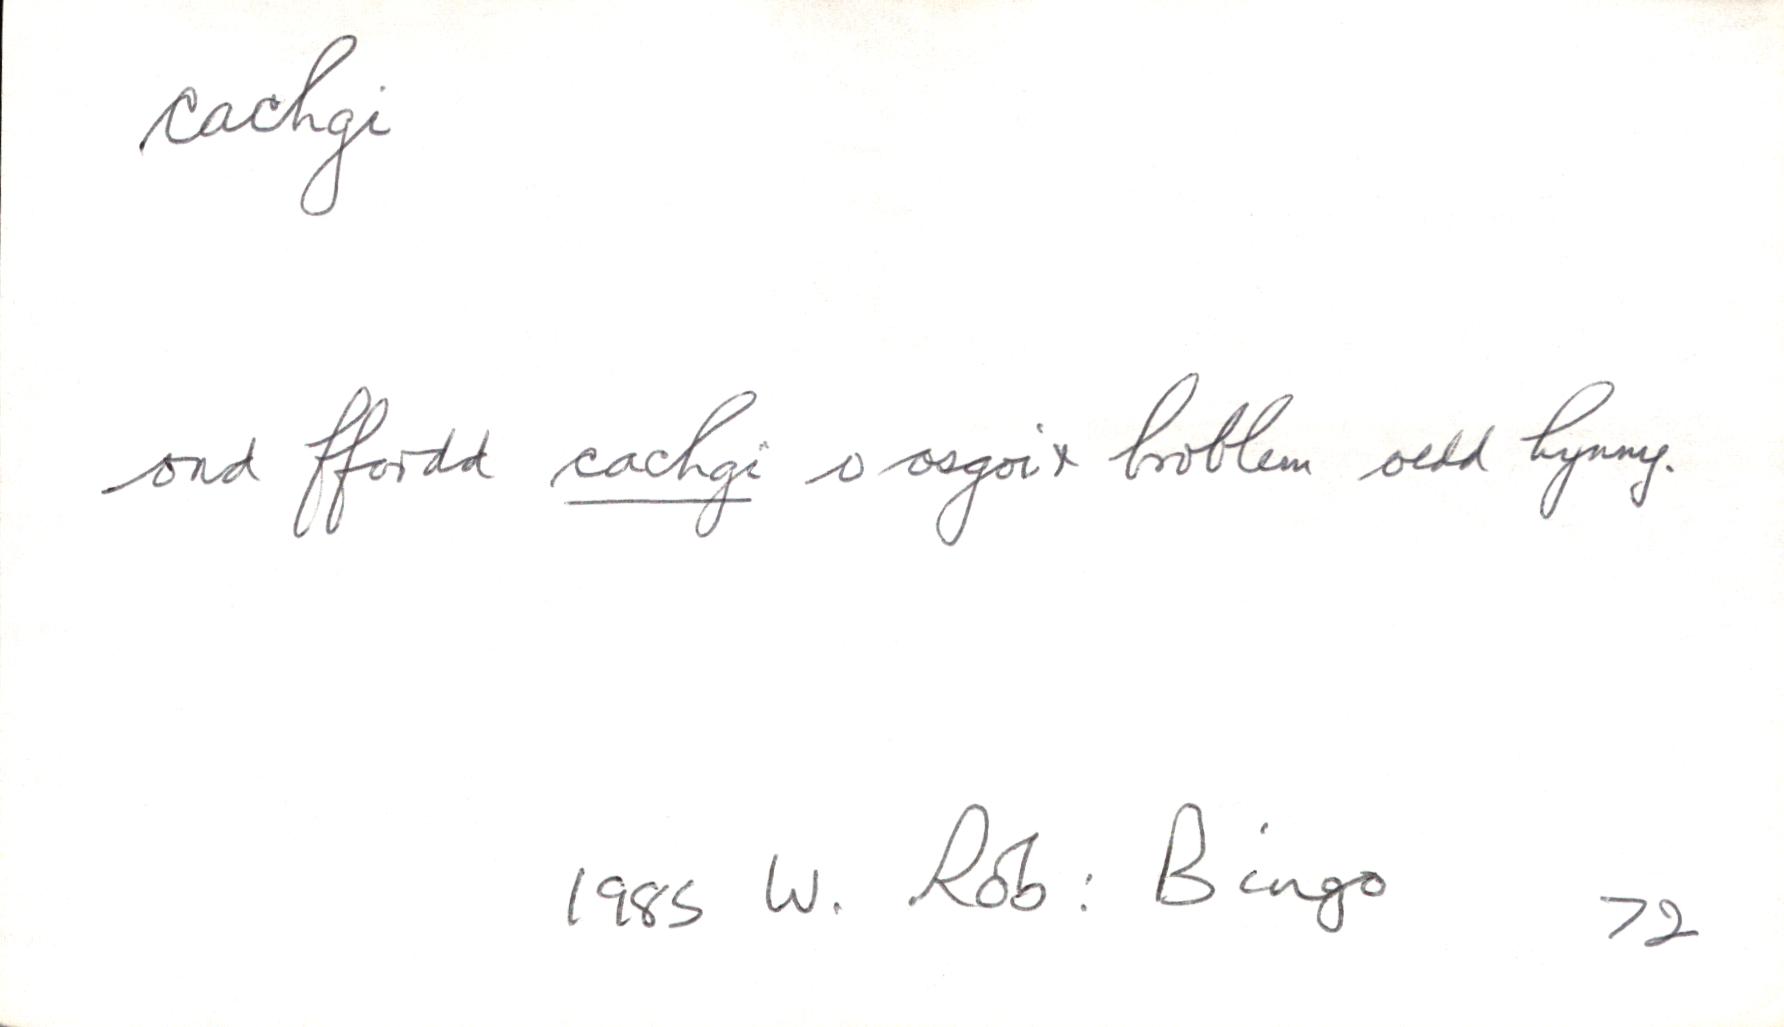 cachgi
ond ffordd cachgi o osgoi'r broblem oedd hynny.
1985 W. Rob: Bingo 72